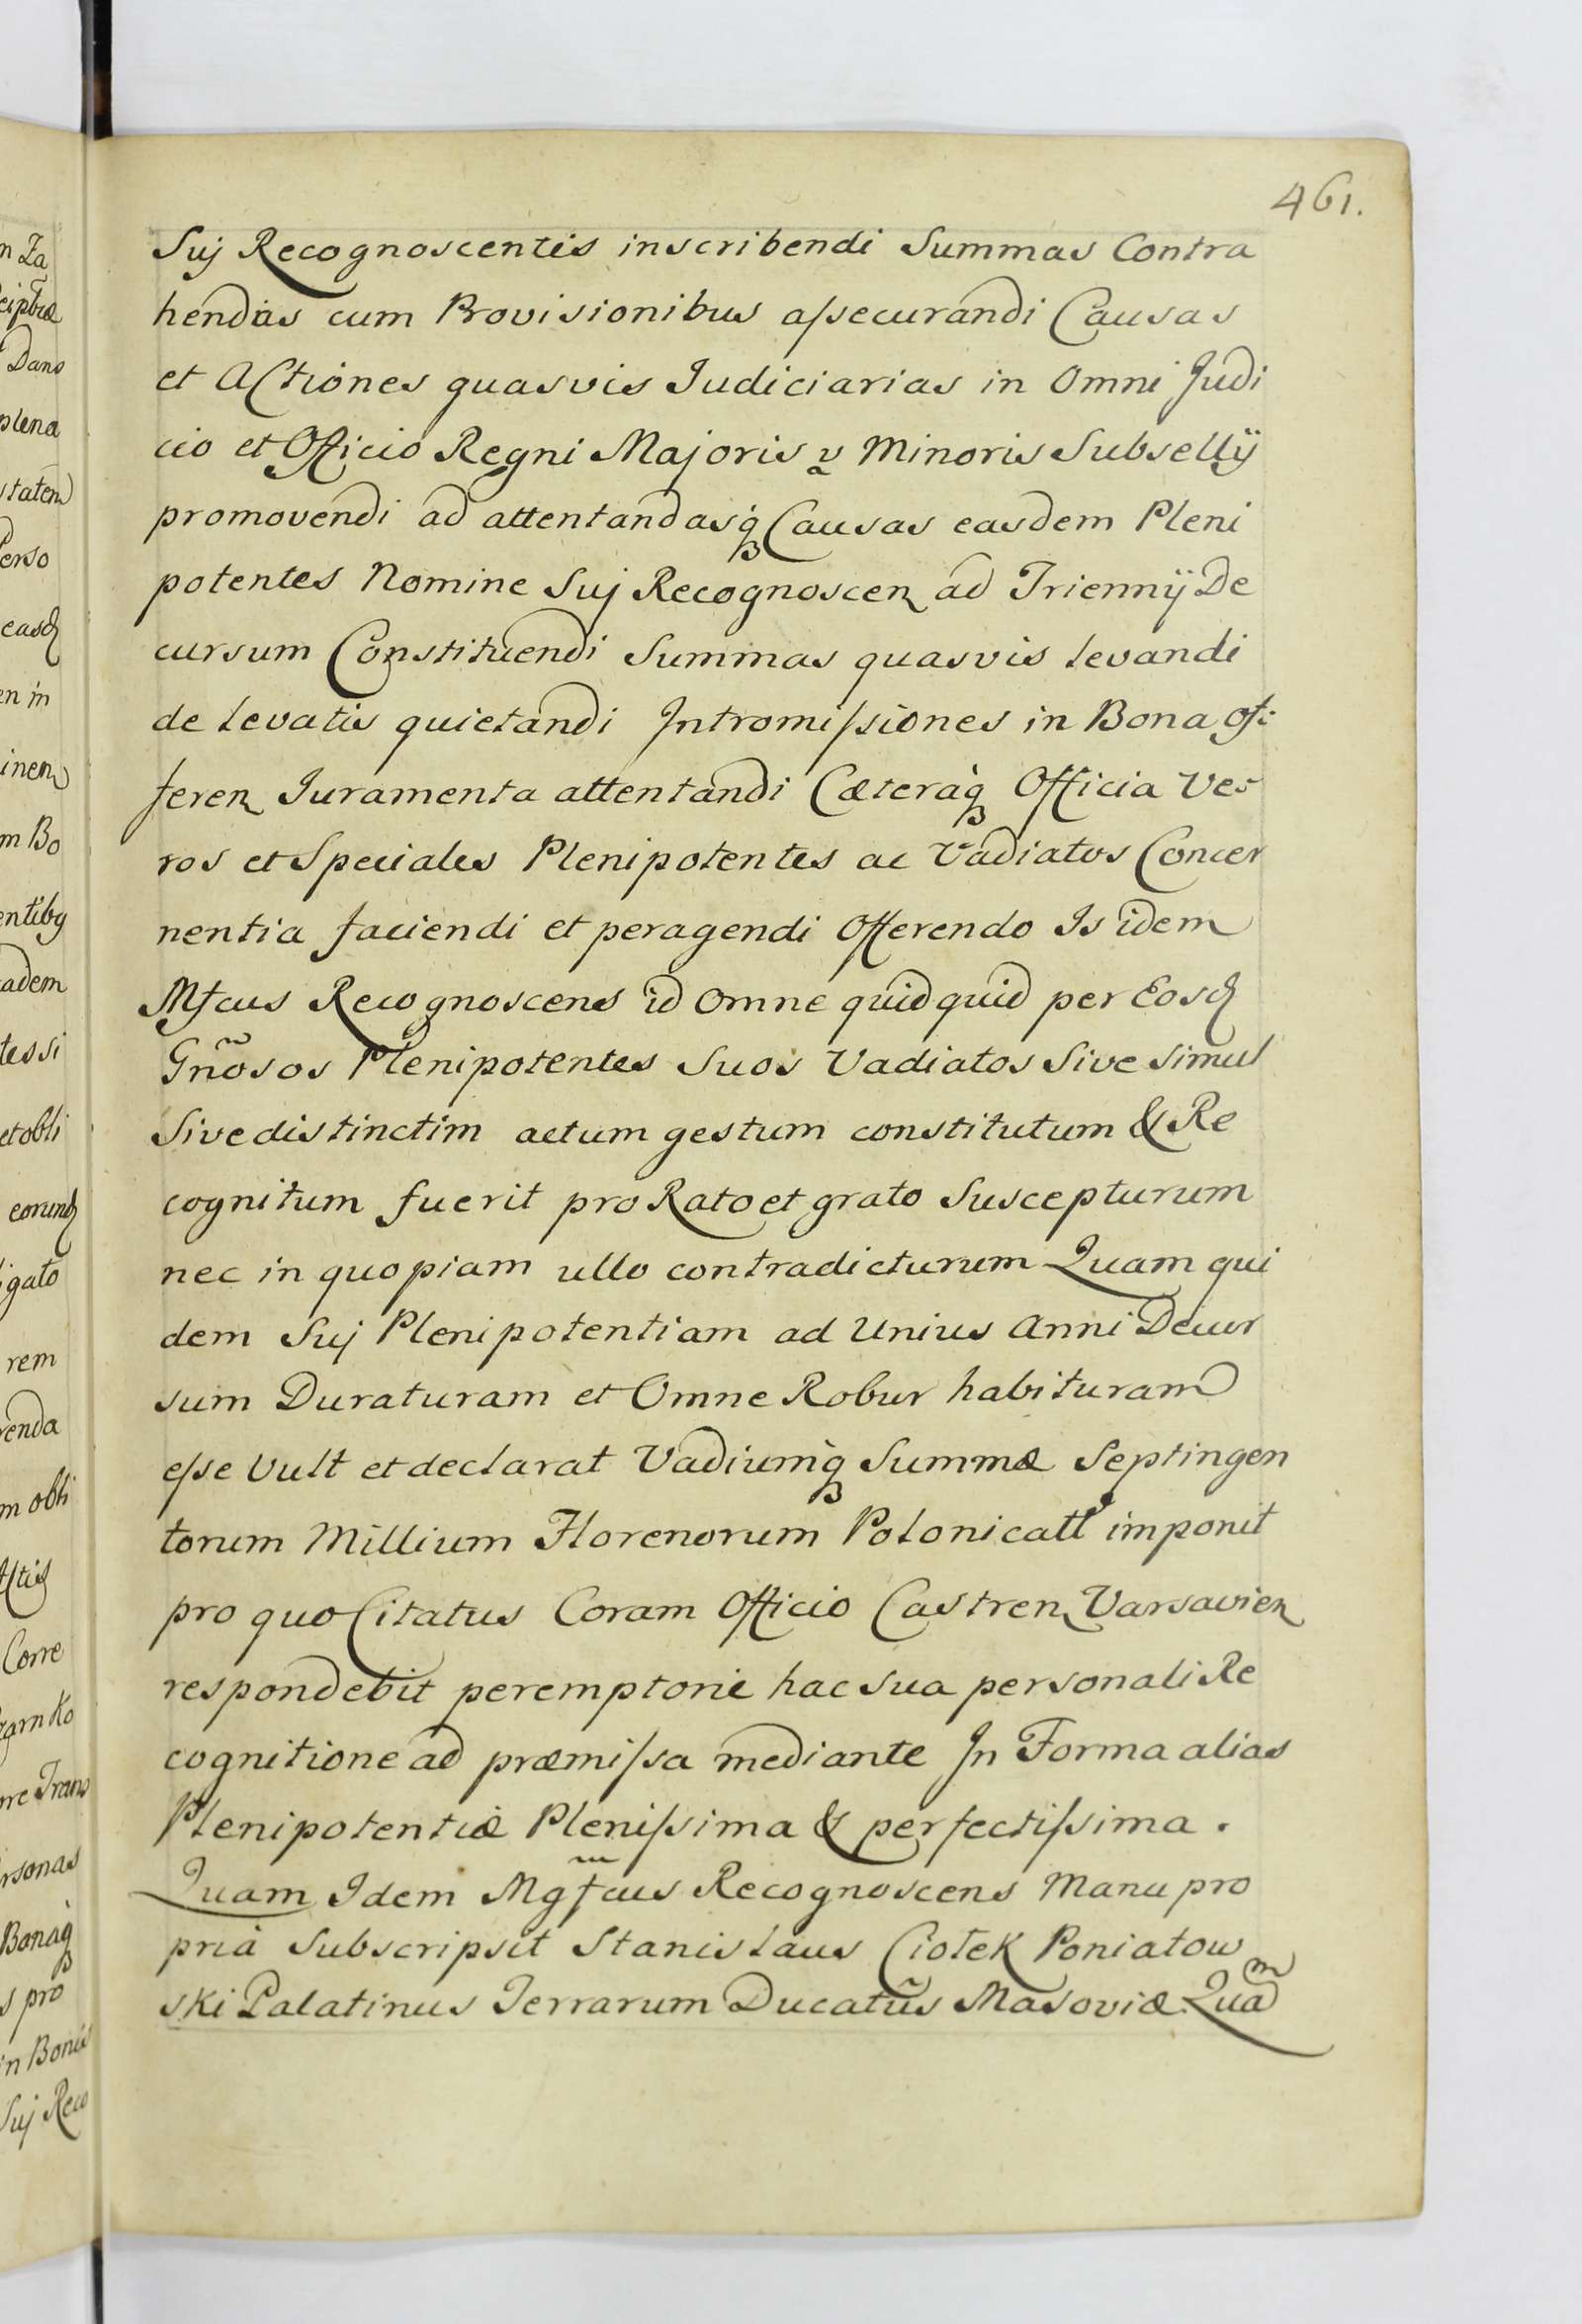 461.
Suj Recognoscentis inscribendi Summas Contra
hendas cum Provisionibus assecurandi Causas
et Actiones quasvis Judiciarias in Omni Judi
cio et Officio Regni Majoris v Minoris Subsellÿ
promovendi ad attentandasq́ Causas easdem Pleni
potentes Nomine Suj Recognoscen ad Triennÿ De
cursum Constituendi Summas quasvis levandi
de levatis quietandi Intromissiones in Bona Of:
feren Iuramenta attentandi Cæteraq́ Officia Ve-
ros et Speciales Plenipotentes ac Vadiatos Concer
nentia faciendi et peragendi Offerendo Is idem
Mfcus Recognoscens id Omne quidquid per Eosd
Gnõsos Plenipotentes Suos Vadiatos Sive simul
Sive distinctim actum gestum constitutum & Re
cognitum fuerit pro Rato et grato Suscepturum
nec in quopiam ullo contradicturum Quam qui
dem Suj Plenipotentiam ad Unius Anni Decur
sum Duraturam et Omne Robur habituram
esse Vult et declarat Vadiumq́ Summæ Septingen
torum Millium Florenorum Polonicall imponit
pro quo Citatus Coram Officio Castren Varsavien
respondebit peremptorie hac sua personali Re
cognitione ad præmissa mediante In Forma alias
Plenipotentiæ Plenissima & perfectissima.
Quam Idem Mgfcus Recognoscens Manu pro
pria Subscripsit Stanislaus Ciołek Poniatow
ski Palatinus Terrarum Ducatũs Masoviæ Quam